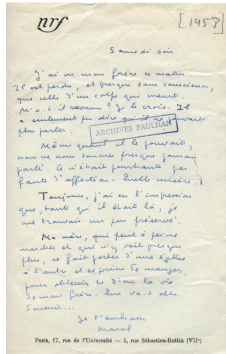 nrf
[1957]
Samedi soir
J'ai vu mon frère ce matin.
Il est perdu, et presque sans conscience,
que celle d'un corps qui meurt.
M'a-t-il reconnu ? Je le crois. Il
a seulement pu dire qu'il ne pouvait
plus parler.
ARCHIVES PAULHAN
Même quand il le pouvait,
nous ne nous sommes presque jamais
parlé. Ce n'était pourtant pas
faute d'affection. Quelle misère !
Toujours, j'ai eu l'impression
que, tant qu'il était là, je
me trouvais un peu préservé.
Ma mère, qui peut à peine
marcher et qui n'y voit presque
plus, se fait porter d'une église
à l'autre et se prive de manger,
pour obtenir de Dieu la vie
de mon frère. Que va-t-elle
devenir...
Je t'embrasse
Marcel
Paris, 17, rue de l'Université — 5, rue Sébastien-Bottin (VIIe)